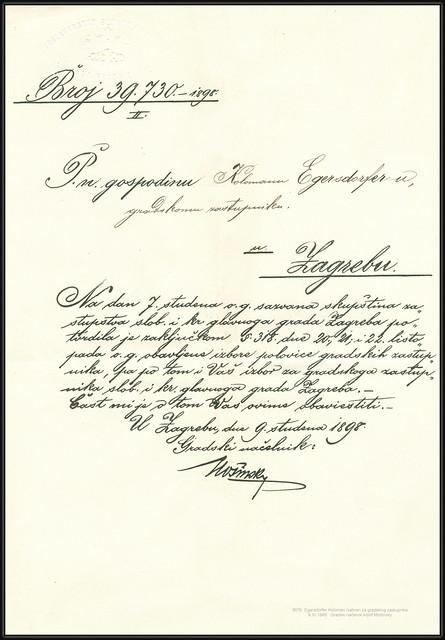 Broj 39.730.-1898.
II.
P. n. gospodinu Kolomanu Egersdorfer-u,
gradskomu zastupniku.
u
Zagrebu.
Na dan 7. studena o. g. sazvana skupština za-
stupstva slob. i kr. glavnoga grada Zagreba po-
tvrdila je zaključkom § 318, dne 20, 21, i 22. listo-
pada o. g. obavljene izbore polovice gradskih zastup-
nika, pa po tom i Vaš izbor za gradskoga zastup-
nika slob. i kr. glavnoga grada Zagreba.-
Čast mi je o tom Vas ovime obaviestiti.-
U Zagrebu, dne 9. studena 1898.
Gradski načelnik:
Mošinsky